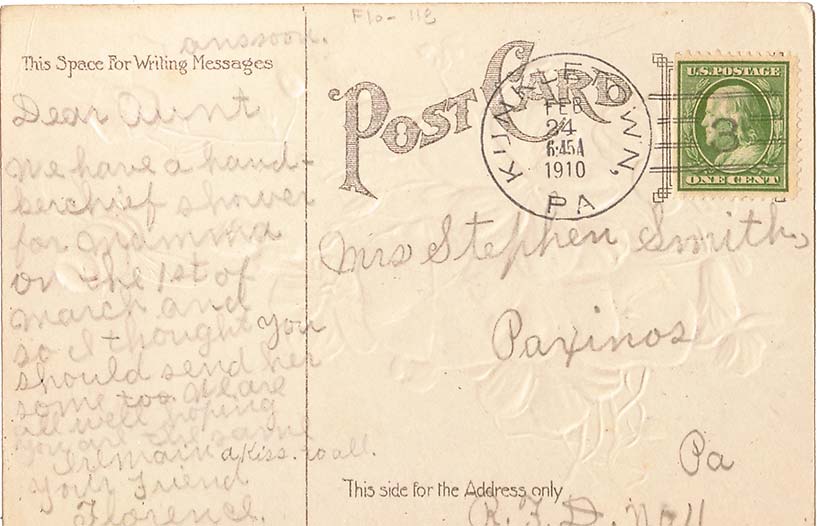 Flo-118
anssoon.
This Space For Writing Messages
Dear Aunt
We have a hand-
berchief shower
for Mamma
on the 1st of
March and
so I thought you
should send her
some too. We are
all well hoping
you are the same
I remain a Kiss. to all.
Your Friend
Florence.
POST CARD
KULPMONT
FEB
24
6:45A
1910
PA
U.S. POSTAGE
3
ONE CENT
Mrs Stephen Smith,
Paxinos
Pa
This side for the Address only
R. F. D. No